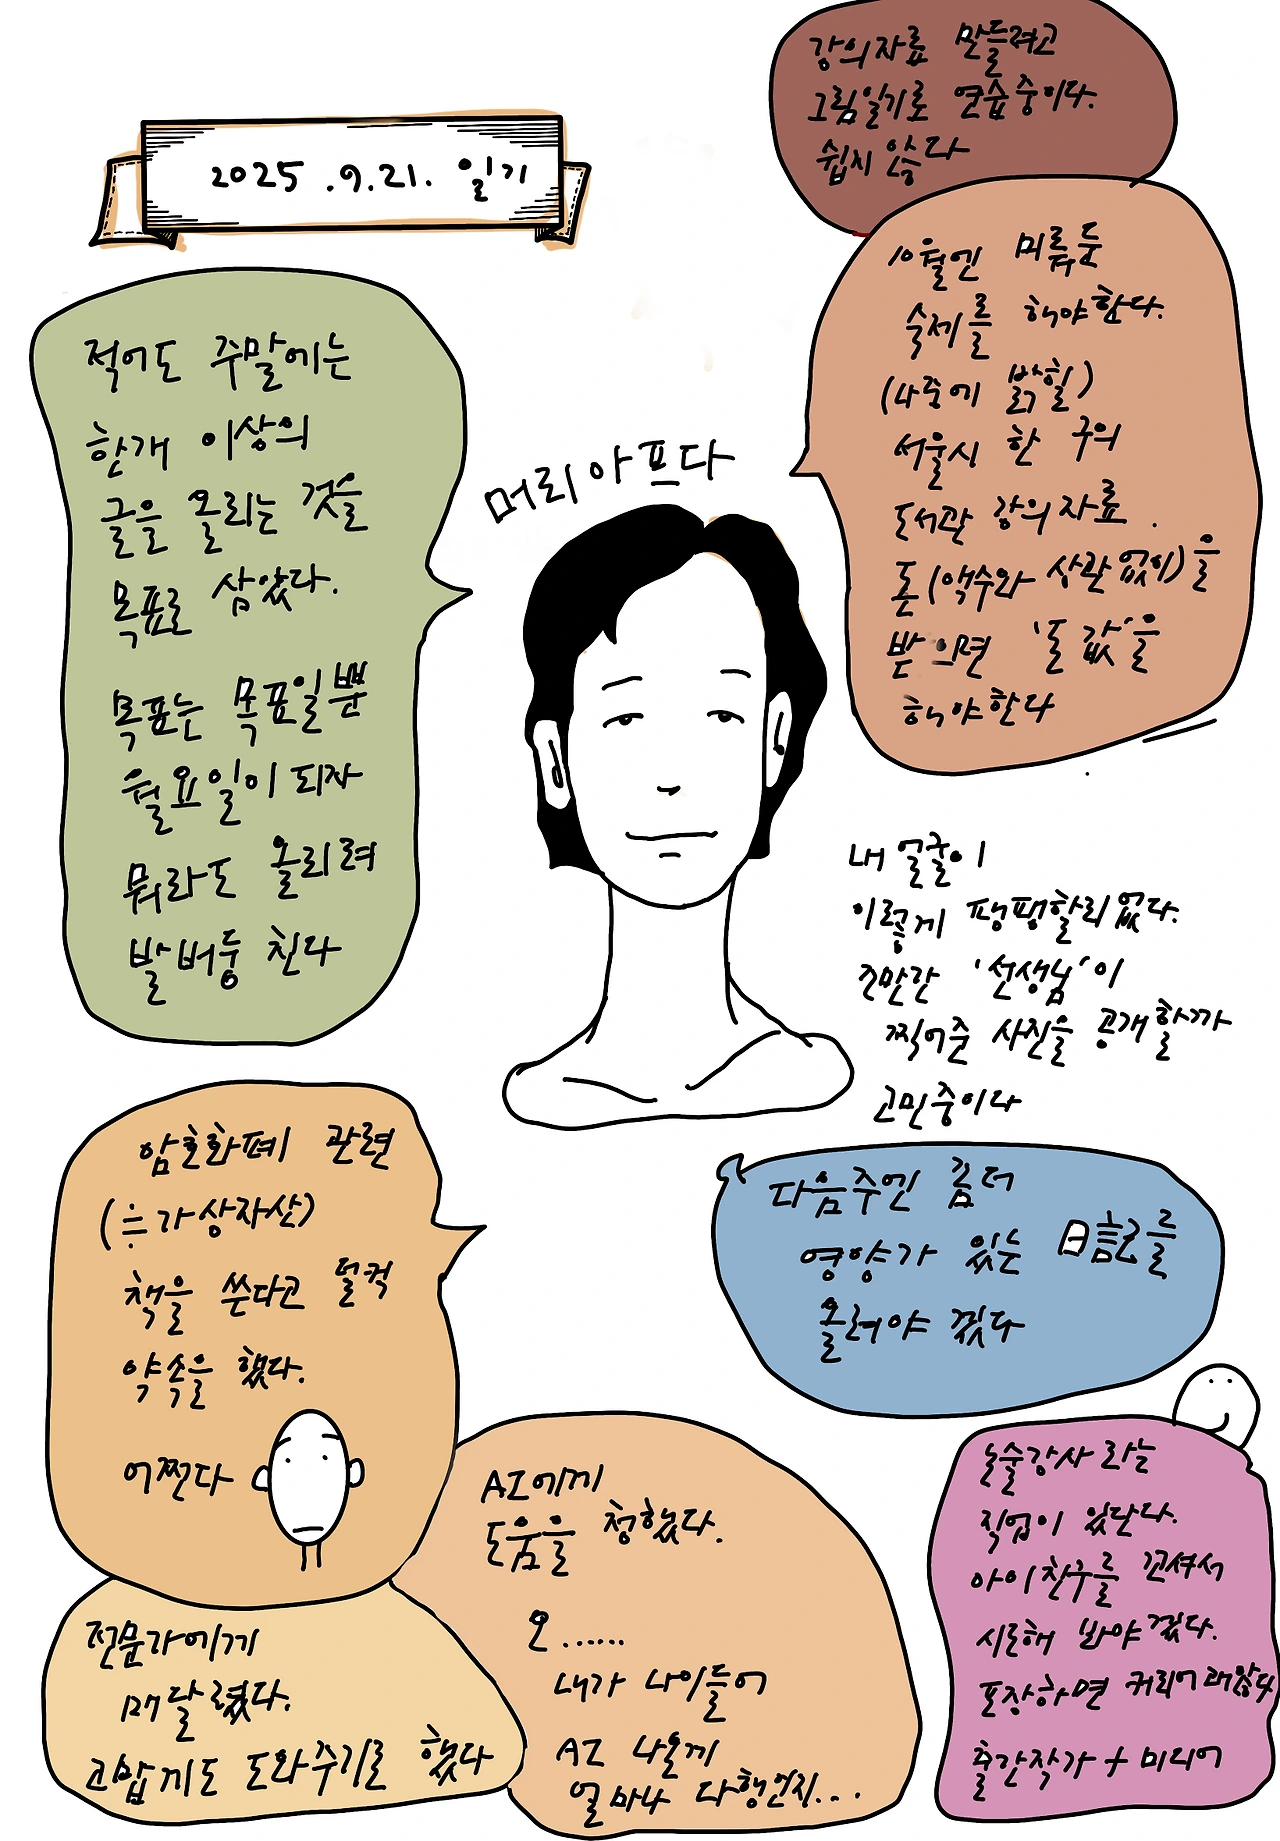 2025.9.21. 일기
강의자료 만들려고
그림일기로 연습중이다.
쉽지 않다
적어도 주말에는
한개 이상의
글을 올리는 것을
목표로 삼았다.
목표는 목표일뿐
월요일이 되자
뭐라도 올리려
발버둥 친다
머리아프다
10월엔 미뤄둔
숙제를 해야한다.
(나중에 밝힐)
서울시 한 구의
도서관 강의자료.
돈(액수와 상관없이)을
받으면 '돈값'을
해야한다
내 얼굴이
이렇게 팽팽할리없다.
조만간 '선생님'이
찍어준 사진을 공개할까
고민중이다
암호화폐 관련
(≒가상자산)
책을 쓴다고 덜컥
약속을 했다.
어쩐다
다음주엔 좀더
영양가 있는 日記를
올려야겠다
전문가에게
매달렸다.
고맙게도 도와주기로 했다
AI에게
도움을 청했다.
오......
내가 나이들어
AI 나온게
얼마나 다행인지...
논술강사라는
직업이 있단다.
아이친구를 꼬셔서
시론해 봐야겠다.
포장하면 커리어괜찮다
출간작가 + 미디어